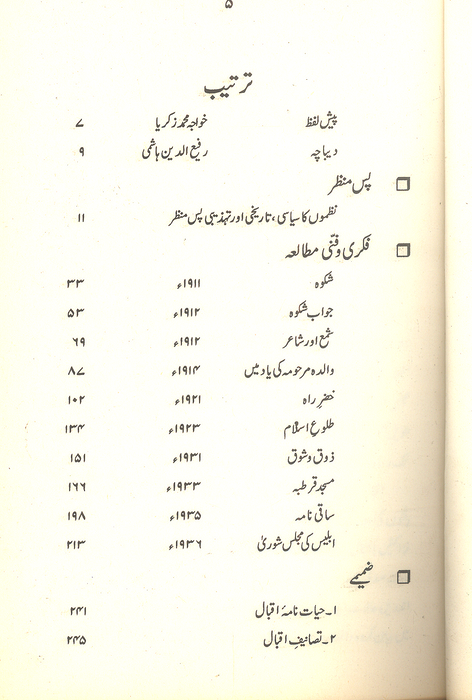 ۵
ترتیب
پیش لفظ خواجہ محمد زکریا ۷
دیباچہ رفیع الدین ہاشمی ۹
پس منظر
نظموں کا سیاسی، تاریخی اور تہذیبی پس منظر ۱۱
فکری و فنّی مطالعہ
شکوہ ۱۹۱۱ء ۳۳
جواب شکوہ ۱۹۱۲ء ۵۳
شمع اور شاعر ۱۹۱۲ء ۶۹
والدہ مرحومہ کی یاد میں ۱۹۱۴ء ۸۷
خضرِ راہ ۱۹۲۱ء ۱۰۲
طلوعِ اسلام ۱۹۲۳ء ۱۳۴
ذوق و شوق ۱۹۳۱ء ۱۵۱
مسجد قرطبہ ۱۹۳۳ء ۱۶۶
ساقی نامہ ۱۹۳۵ء ۱۹۸
ابلیس کی مجلس شوریٰ ۱۹۳۶ء ۲۱۳
ضمیمے
۱۔ حیات نامۂ اقبال ۲۴۱
۲۔ تصانیفِ اقبال ۲۴۵